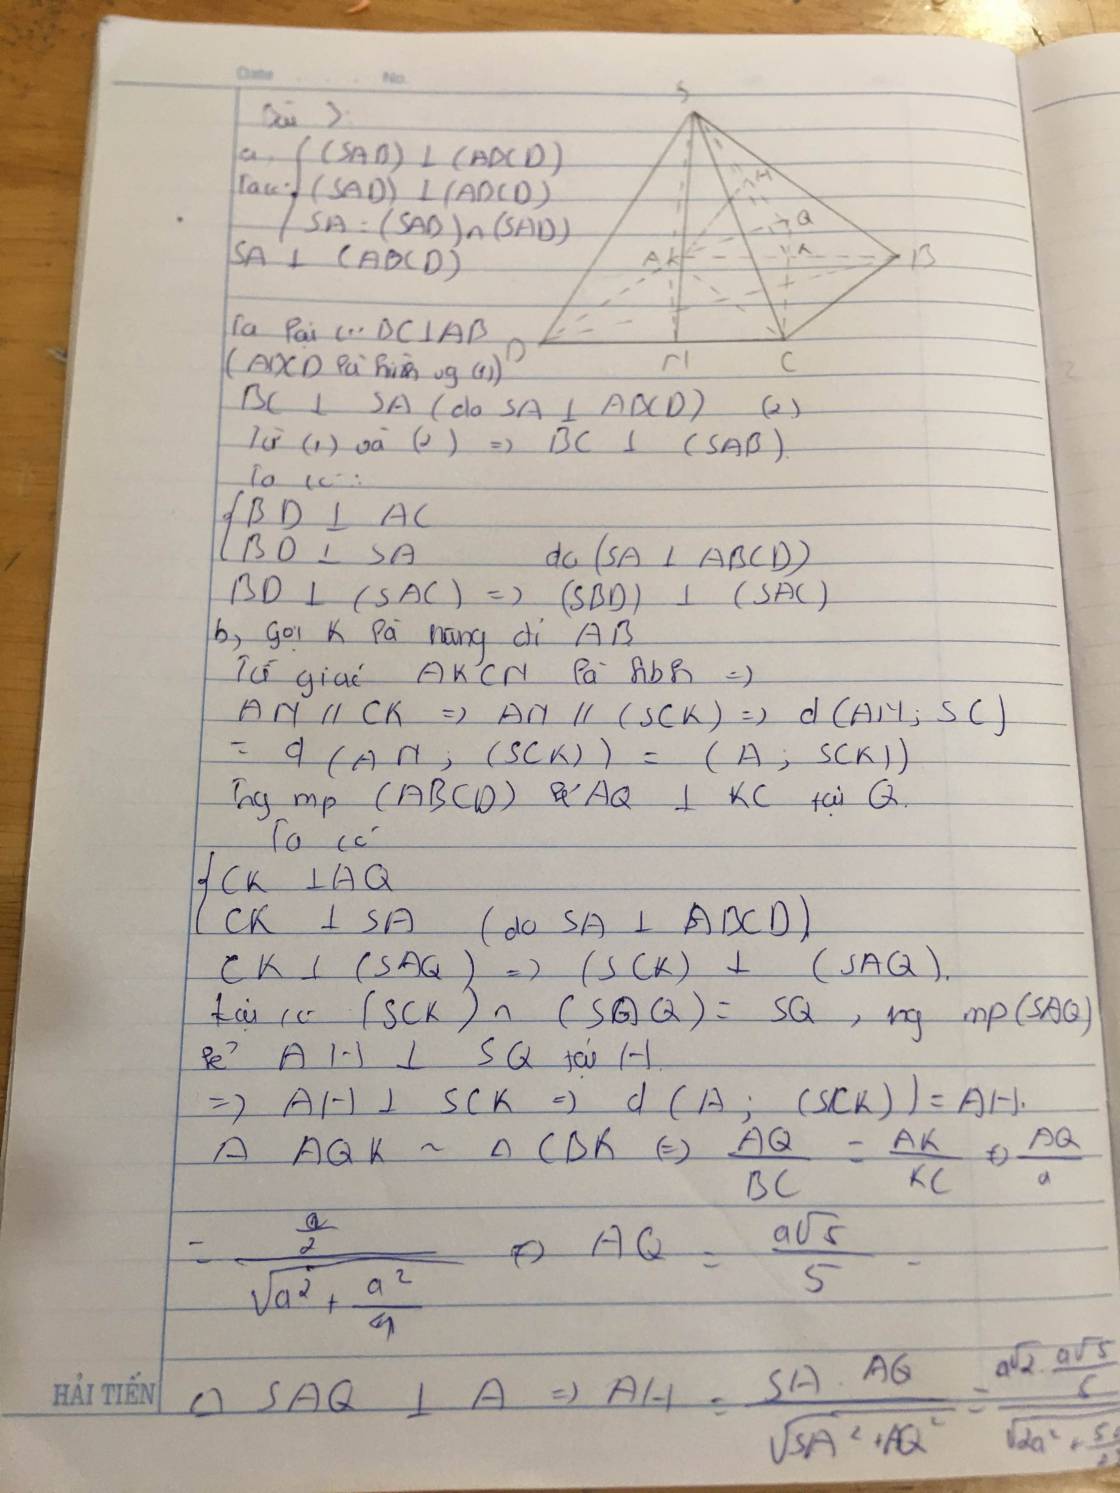 Date No.
Bài 3:
a, (SAB) ⊥ (ABCD)
Ta có: (SAD) ⊥ (ABCD)
SA = (SAB) ∩ (SAD)
SA ⊥ (ABCD)
Ta lại có BC ⊥ AB
(ABCD là hình vg (1))
BC ⊥ SA (do SA ⊥ ABCD) (2)
Từ (1) và (2) => BC ⊥ (SAB).
Ta có:
BD ⊥ AC
BD ⊥ SA do (SA ⊥ ABCD)
BD ⊥ (SAC) => (SBD) ⊥ (SAC)
b, Gọi K là AB
Tứ giác AKCM là hbh =>
AM // CK => AM // (SCK) => d(AM; SC)
= d(AM; (SCK)) = (A; SCK))
Trg mp (ABCD) kẻ AQ ⊥ KC tại Q.
Ta có
CK ⊥ AQ
CK ⊥ SA (do SA ⊥ ABCD)
CK ⊥ (SAQ) => (SCK) ⊥ (SAQ).
Lại có (SCK) ∩ (SAQ) = SQ, trg mp (SAQ)
kẻ AH ⊥ SQ tại H.
=> AH ⊥ SCK => d(A; (SCK)) = AH.
Δ AQK ~ Δ CBK (=) AQ/BC = AK/KC <=> AQ/a
= (a/2)/√(a² + a²/4) <=> AQ = a√5/5
Δ SAQ ⊥ A => AH = SA . AQ/√(SA² + AQ²) = (a√2 . a√5/5)/√(2a² +
HẢI TIẾN
S
H
Q
A
K
B
D
M
C